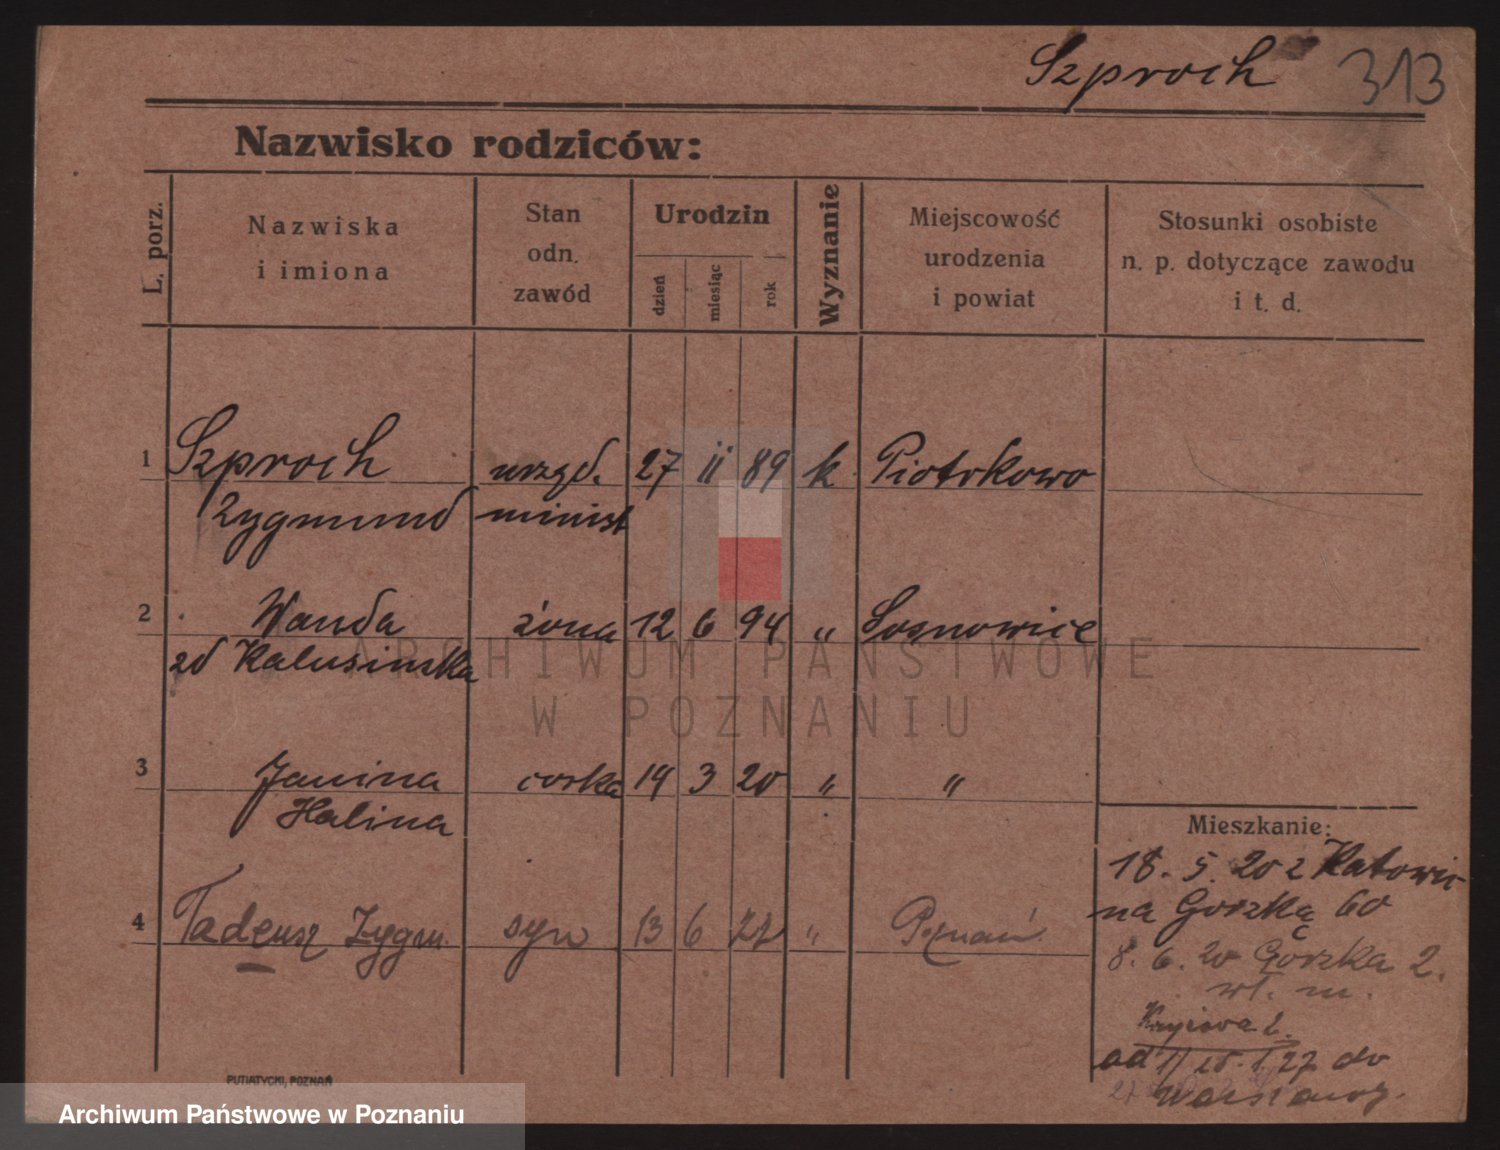 Szproch 313
Nazwisko rodziców:
L. porz.
Nazwiska
i imiona
Stan
odn.
zawód
Urodzin
dzień
miesiąc
rok
Wyznanie
Miejscowość
urodzenia
i powiat
Stosunki osobiste
n. p. dotyczące zawodu
i t. d.
1 Szproch urzęd. 27 ii 89 k Piotrkowo
Zygmund minist
2 Wanda żona 12 6 94 " Sosnowice
zd Kalusinska
ARCHIWUM PAŃSTWOWE
W POZNANIU
3 Janina corka 14 3 20 " "
Halina
Mieszkanie:
18. 5. 20 z Katowic
na Gorzką 60
4 Tadeusz Zygm. syn 13 6 22 " Poznań
8. 6. 20 Górzka 2.
wł. m.
2.
od 1/ 27 do
Warszawy.
PUTIATYCKI, POZNAŃ
Archiwum Państwowe w Poznaniu